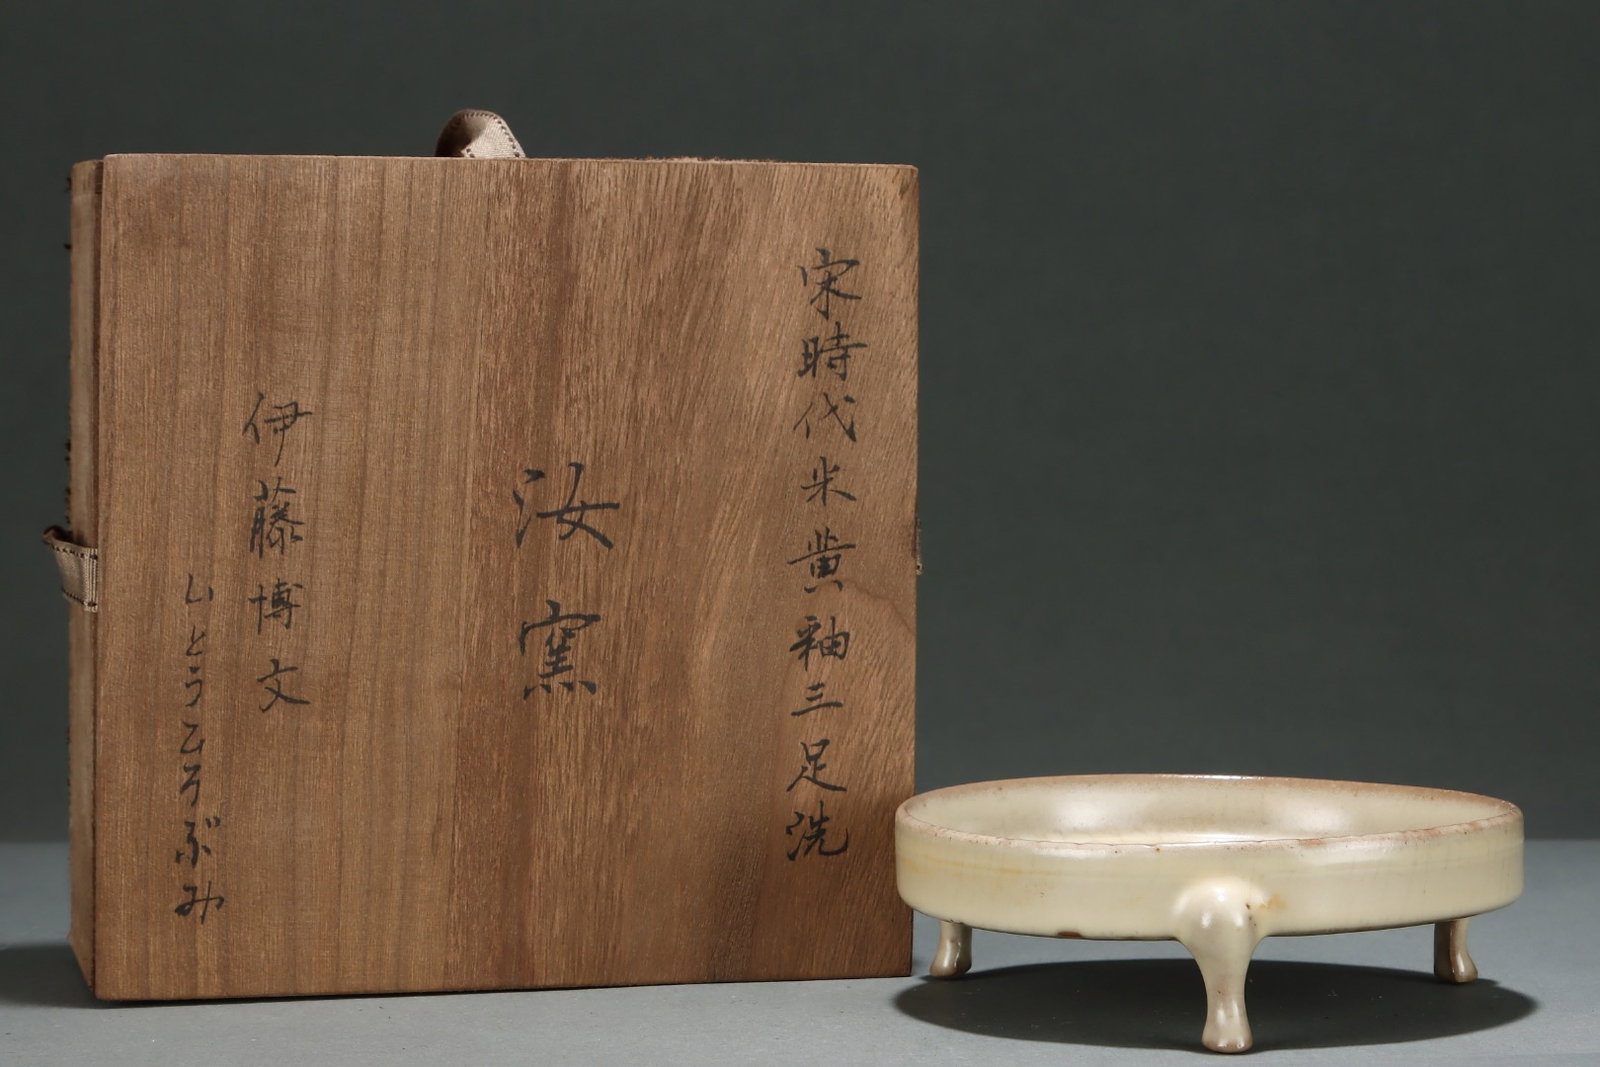 宋時代米黄釉三足洗
汝窯
伊藤博文
いとうひろぶみ